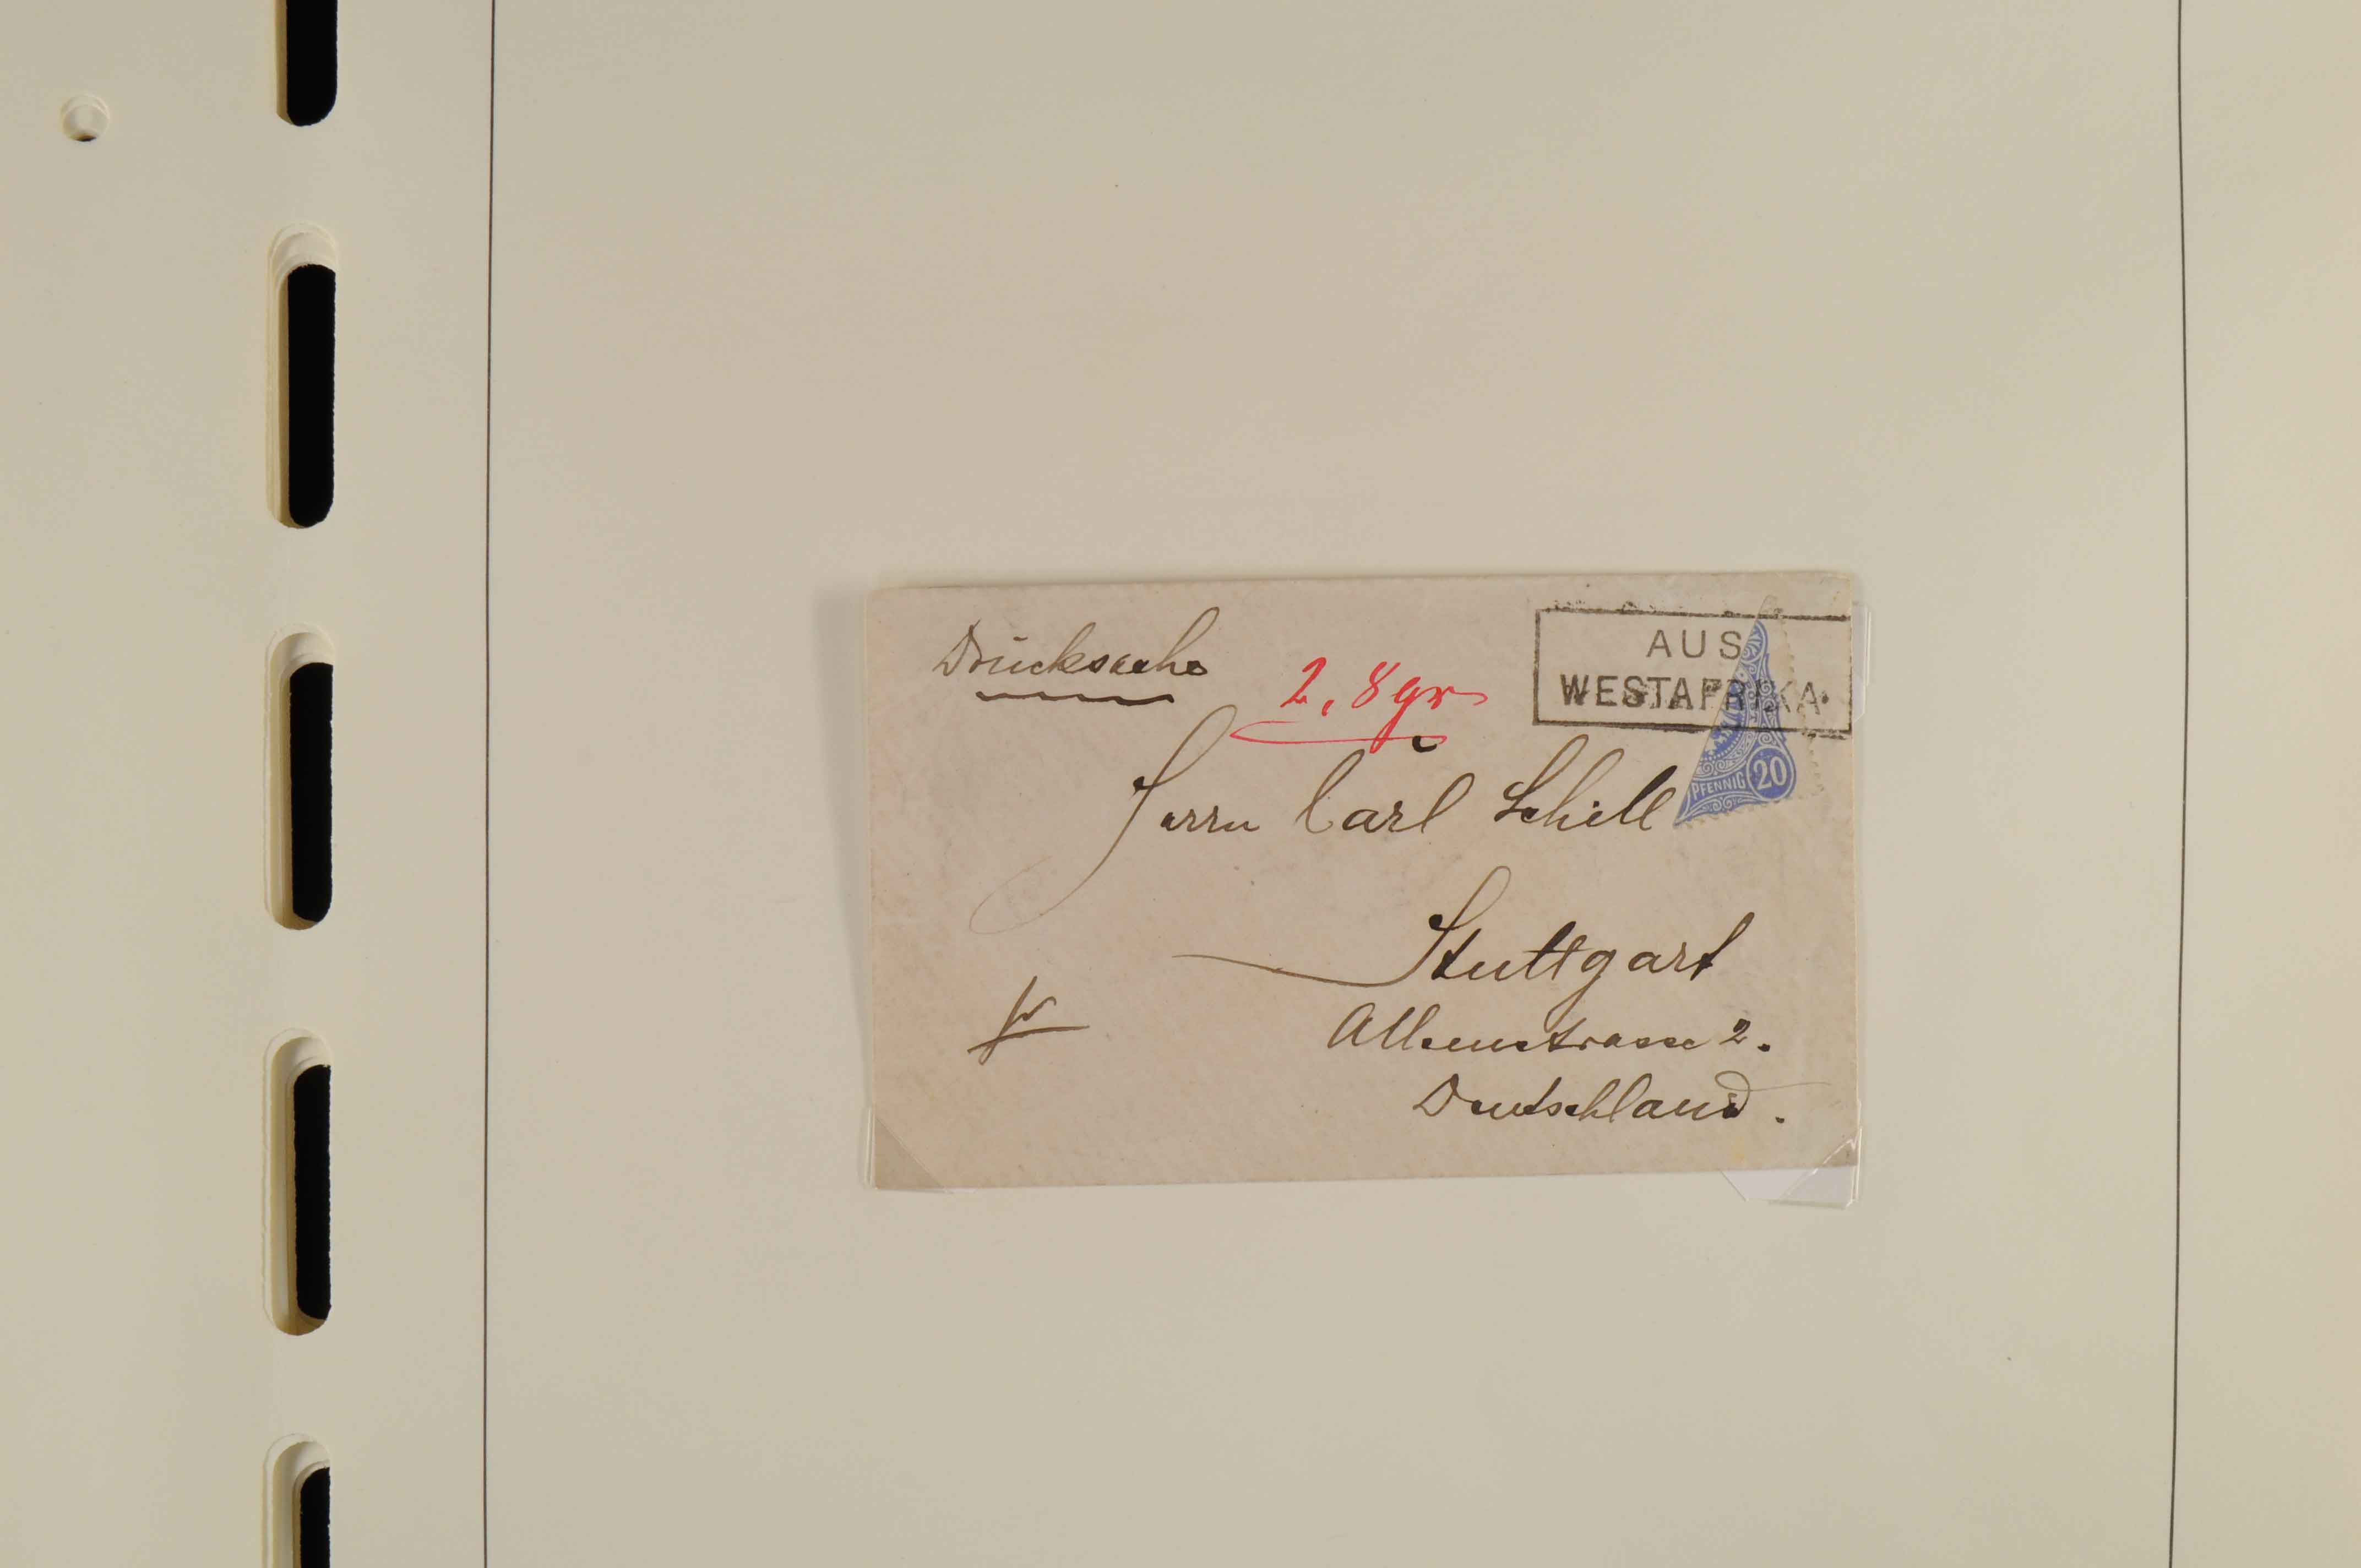 Drucksache
2,8 gr
AUS
WESTAFRIKA.
PFENNIG 20
Herrn Carl Schill
Stuttgart
2.
Deutschland.